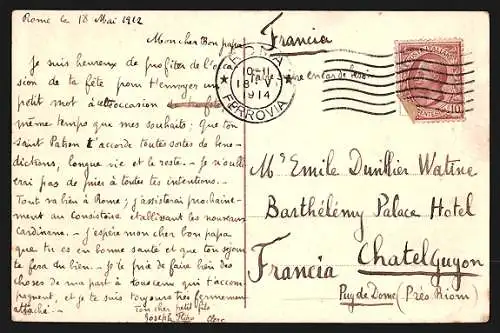 Rome le 18 Mai 1912
Mon cher Bon papa
Je suis heureux de profiter de l'occa
sion de ta fête pour t'envoyer un
petit mot à l'occasion
même temps que mes souhaits; que ton
Saint Patron t'accorde toutes sortes de béné-
dictions, longue vie et le reste. Je n'oublie
rai pas de prier à toutes tes intentions.
Tout va bien à Rome; j'assisterai prochaine-
ment au consistoire établissant les nouveaux
cardinaux. J'espère mon cher bon papa
que tu es en bonne santé et que ton séjour
te fera du bien. Je te prie de faire bien des
choses de ma part à tous ceux qui t'accom
pagnent, et je te suis toujours très fermement
attaché.
Ton cher petit fils
Joseph
Clerc
Francia
ROMA
10-11
18 V.
1914
FERROVIA
10
Mr Emile Dunllier Watine
Barthélémy Palace Hotel
Chatelguyon
Francia
Puy de Dome (Près Riom)